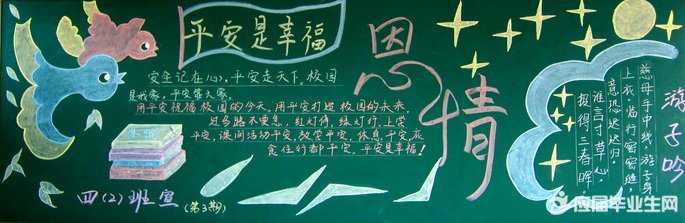 平安是幸福
安全记在心，平安走天下。校园
是我家，平安靠大家。
用平安祝福校园的今天，用平安打造校园的未来。
过马路不要急，红灯停，绿灯行，上学
平安，课间活动平安，放学平安，休息平安，衣
食住行都平安，平安是幸福！
四（2）班宣
（第3期）
恩情
游子吟
慈母手中线，游子身
上衣，临行密密缝，
意恐迟迟归，
谁言寸草心，
报得三春晖。
应届毕业生网